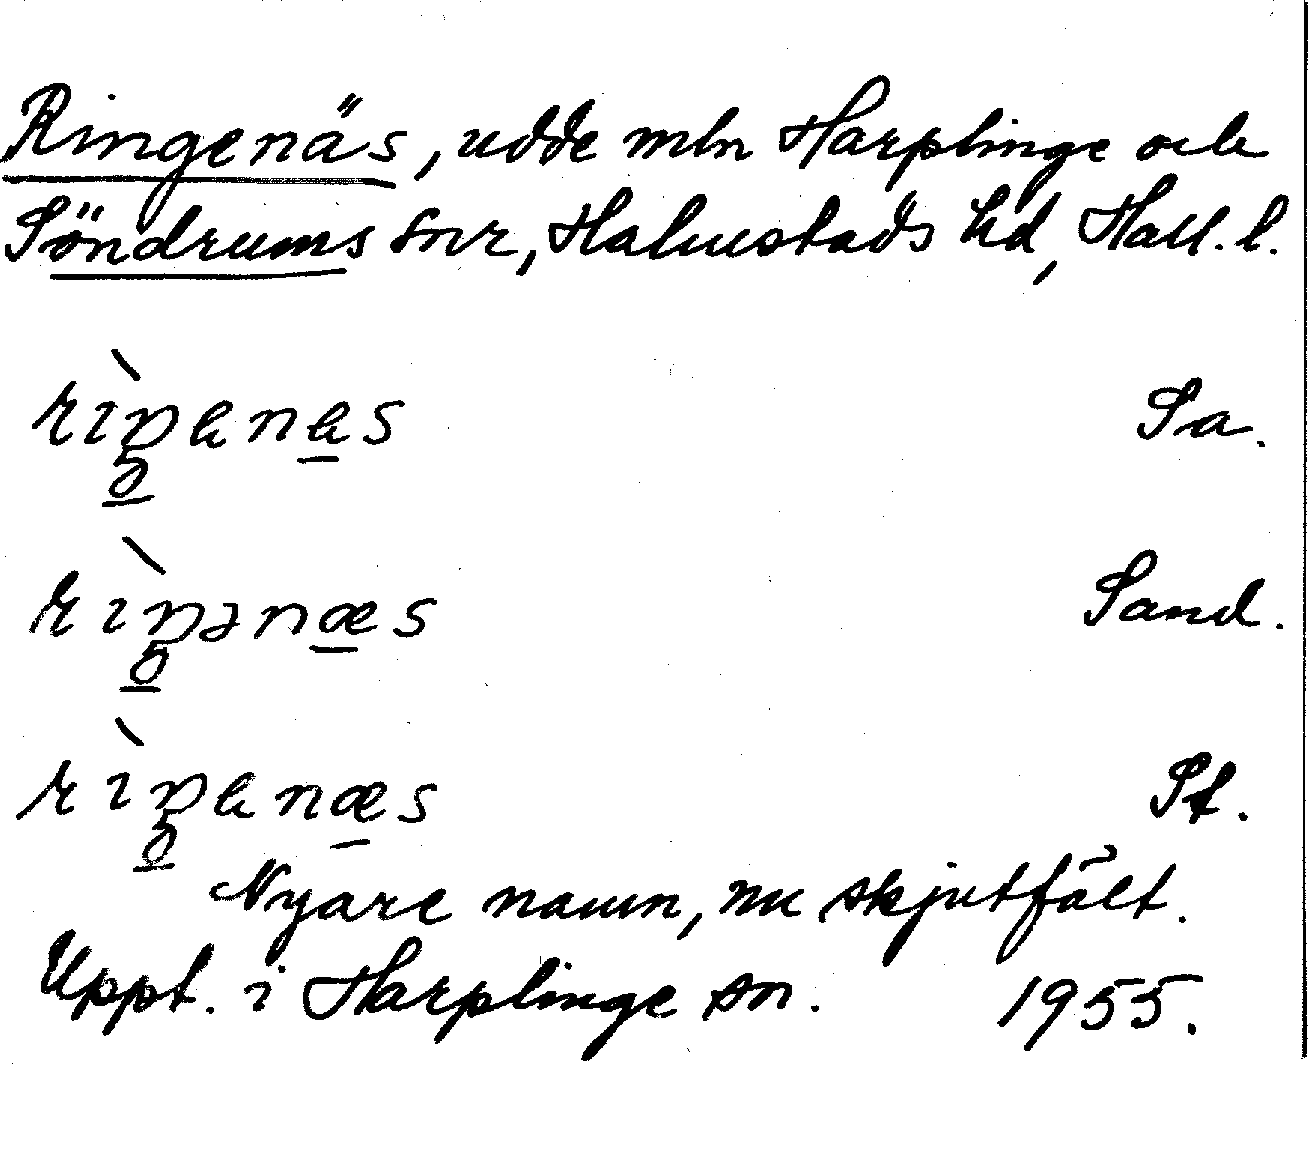 Ringenäs, udde mln Harplinge och
Söndrums snr, Halmstads hd, Hall. l.
Sa.
Sand.
St.
Nyare namn, nu skjutfält.
Uppt. i Harplinge sn. 1955.